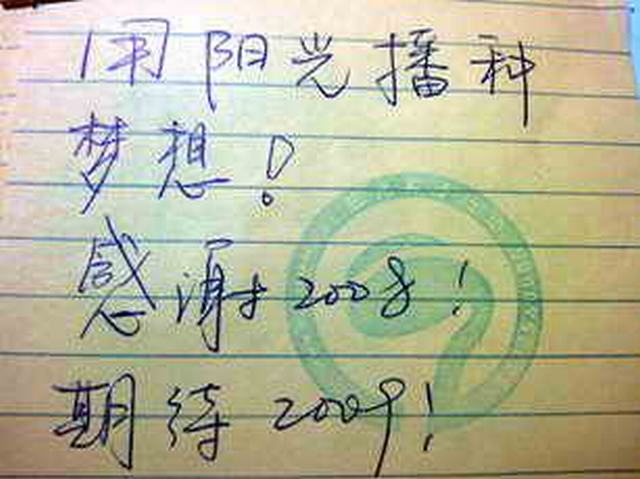 用阳光播种
梦想!
感谢2008!
期待2009!